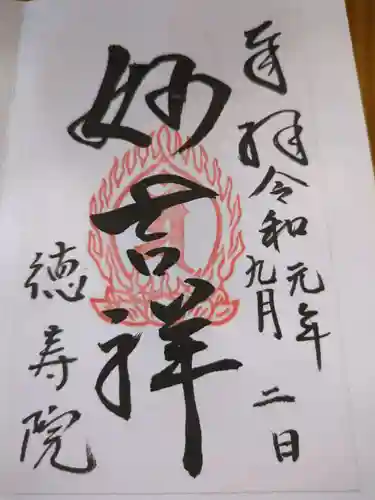 奉拝 令和元年
九月二日
妙吉祥
徳寿院